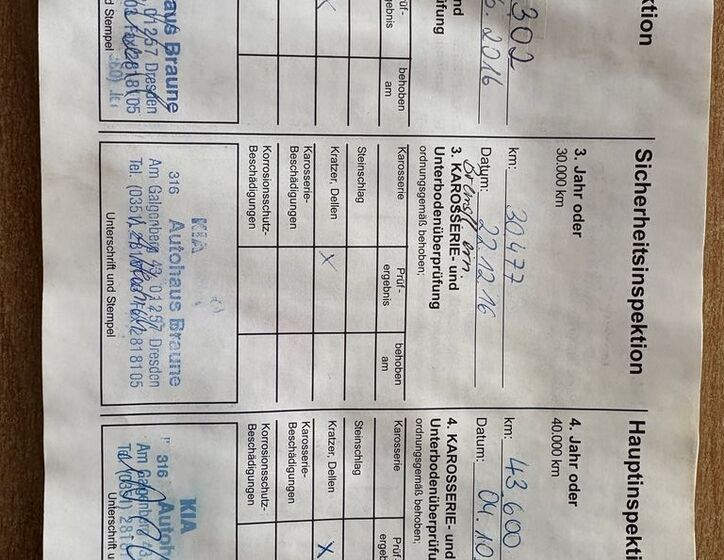 ktion
302
. 2016
nd
rüfung
Prüf-
ergebnis
behoben
am
aus Braune
01257 Dresden
d Stempel
Sicherheitsinspektion
3. Jahr oder
30.000 km
km: 30 477
Datum: 22.12.16
3. KAROSSERIE- und
Unterbodenüberprüfung
ordnungsgemäß behoben;
Karosserie
Prüf-
ergebnis
behoben
am
Steinschlag
Kratzer, Dellen X
Karosserie-
Beschädigungen
Korrosionsschutz-
Beschädigungen
KIA
316 Autohaus Braune
Am Galgenberg 01257 Dresden
Tel. (0351) 2818105
Unterschrift und Stempel
Hauptinspekti
4. Jahr oder
40.000 km
km: 43 600
Datum: 04.10
4. KAROSSERIE- und
Unterbodenüberprüfu
ordnungsgemäß behoben;
Karosserie
Prüf-
ergeb
Steinschlag
Kratzer, Dellen X
Karosserie-
Beschädigungen
Korrosionsschutz-
Beschädigungen
KIA
316 Autoh
Am Galgenberg
Unterschrift und